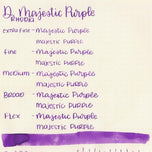 D. Majestic Purple
Rhodia
extra fine - Majestic Purple
majestic purple
Fine - Majestic Purple
majestic purple
medium - Majestic Purple
majestic purple
Broad - Majestic Purple
majestic purple
Flex - Majestic Purple
majestic purple